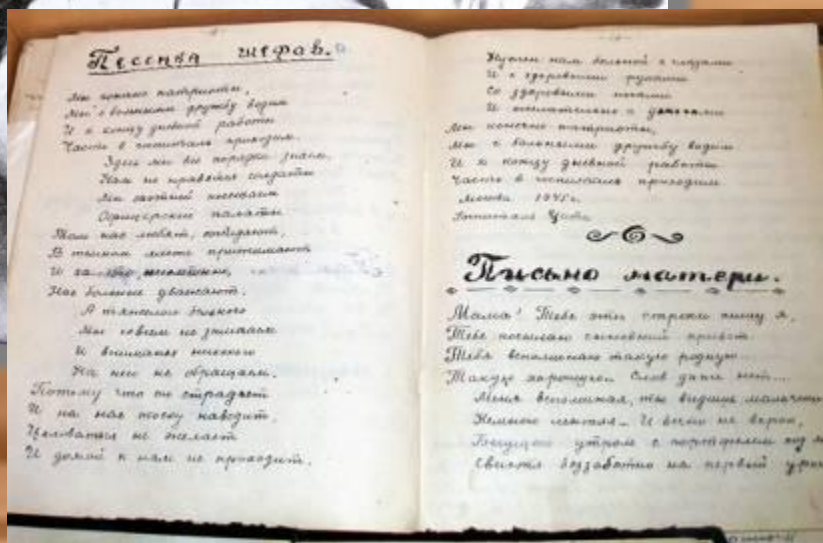 Песенка шефов.
Мы конечно патриоты,
Мы с больными дружбу водим
И к концу дневной работы
Часто в госпиталь приходим.
Здесь мы все порядки знаем.
Нам не нравятся солдаты
Мы охотней посещаем
Офицерские палаты
Там нас любят,
В тёмном месте прижимают
И за это
Нас больные уважают.
А тяжелого больного
Мы совсем не замечаем
И вниманья никакого
На него не обращаем.
Потому что он страдает
И на нас тоску наводит.
Целоваться не желает
И домой к нам не приходит.
Нужен нам больной с глазами
И с здоровыми руками
Со здоровыми ногами
И желательно с
Мы конечно патриоты,
Мы с больными дружбу водим
И к концу дневной работы
Часто в госпиталь приходим
Москва 1945 г.
Госпиталь
Письмо матери.
Мама! Тебе эти строки пишу я,
Тебе посылаю сыновний привет.
Тебя вспоминаю такую родную
Такую хорошую Слов даже нет...
Меня вспоминая, ты видишь мальчиш
Немного лентяя И вечно не
Бегущего утром с портфелем под м
Свистя беззаботно на первый урок